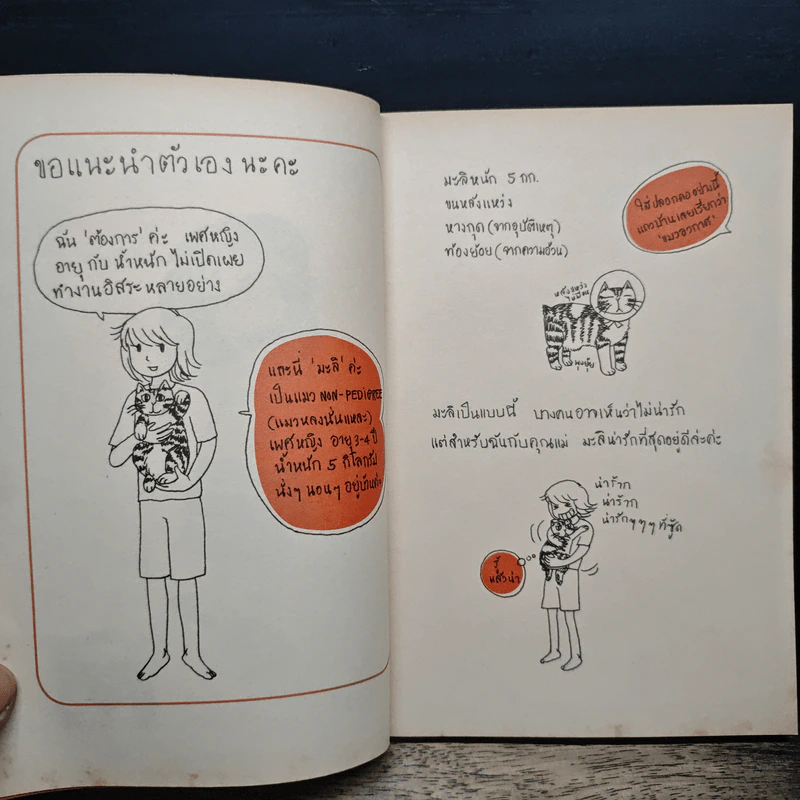 ขอแนะนำตัวเองนะคะ
ฉัน 'ต้องการ' ค่ะ เพศหญิง
อายุ กับ น้ำหนัก ไม่เปิดเผย
ทำงานอิสระ หลายอย่าง
และนี่ 'มะลิ' ค่ะ
เป็นแมว NON-PEDIGREE
(แมวหลงนั่นแหละ)
เพศหญิง อายุ 3-4 ปี
น้ำหนัก 5 กิโลกรัม
นั่งๆ นอนๆ อยู่บ้าน
มะลิหนัก 5 กก.
ขนหลังแหว่ง
หางกุด (จากอุบัติเหตุ)
ท้องย้อย (จากความอ้วน)
ใส่ปลอกคออย่างนี้
แถวบ้านเลยเรียกว่า
'แมวอวกาศ'
หลังแหว่ง
พุงยุ้ย
มะลิเป็นแบบนี้ บางคนอาจเห็นว่าไม่น่ารัก
แต่สำหรับฉันกับคุณแม่ มะลิน่ารักที่สุดอยู่ดีล่ะค่ะ
น่าร้าก
น่าร้าก
น่ารักๆๆๆ ที่ซู้ด
รู้
แล้วน่า